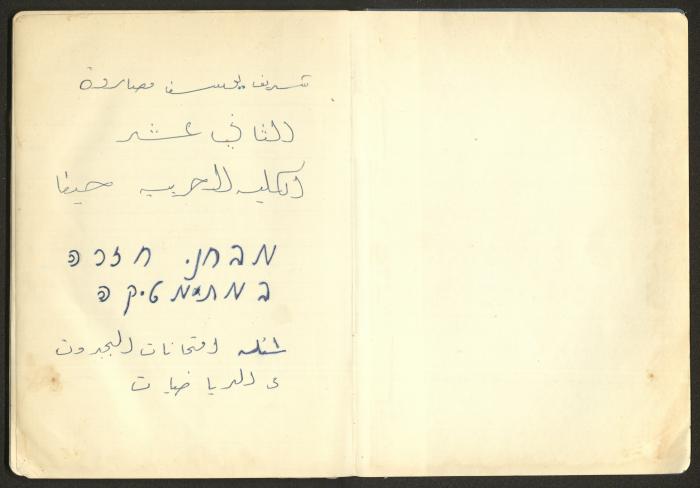 شريف يوسف مصاروة
الثاني عشر
الكليه العربيه حيفا
מבחני חזרה
במתימטיקה
اسئله امتحانات البجروت
الرياضيات